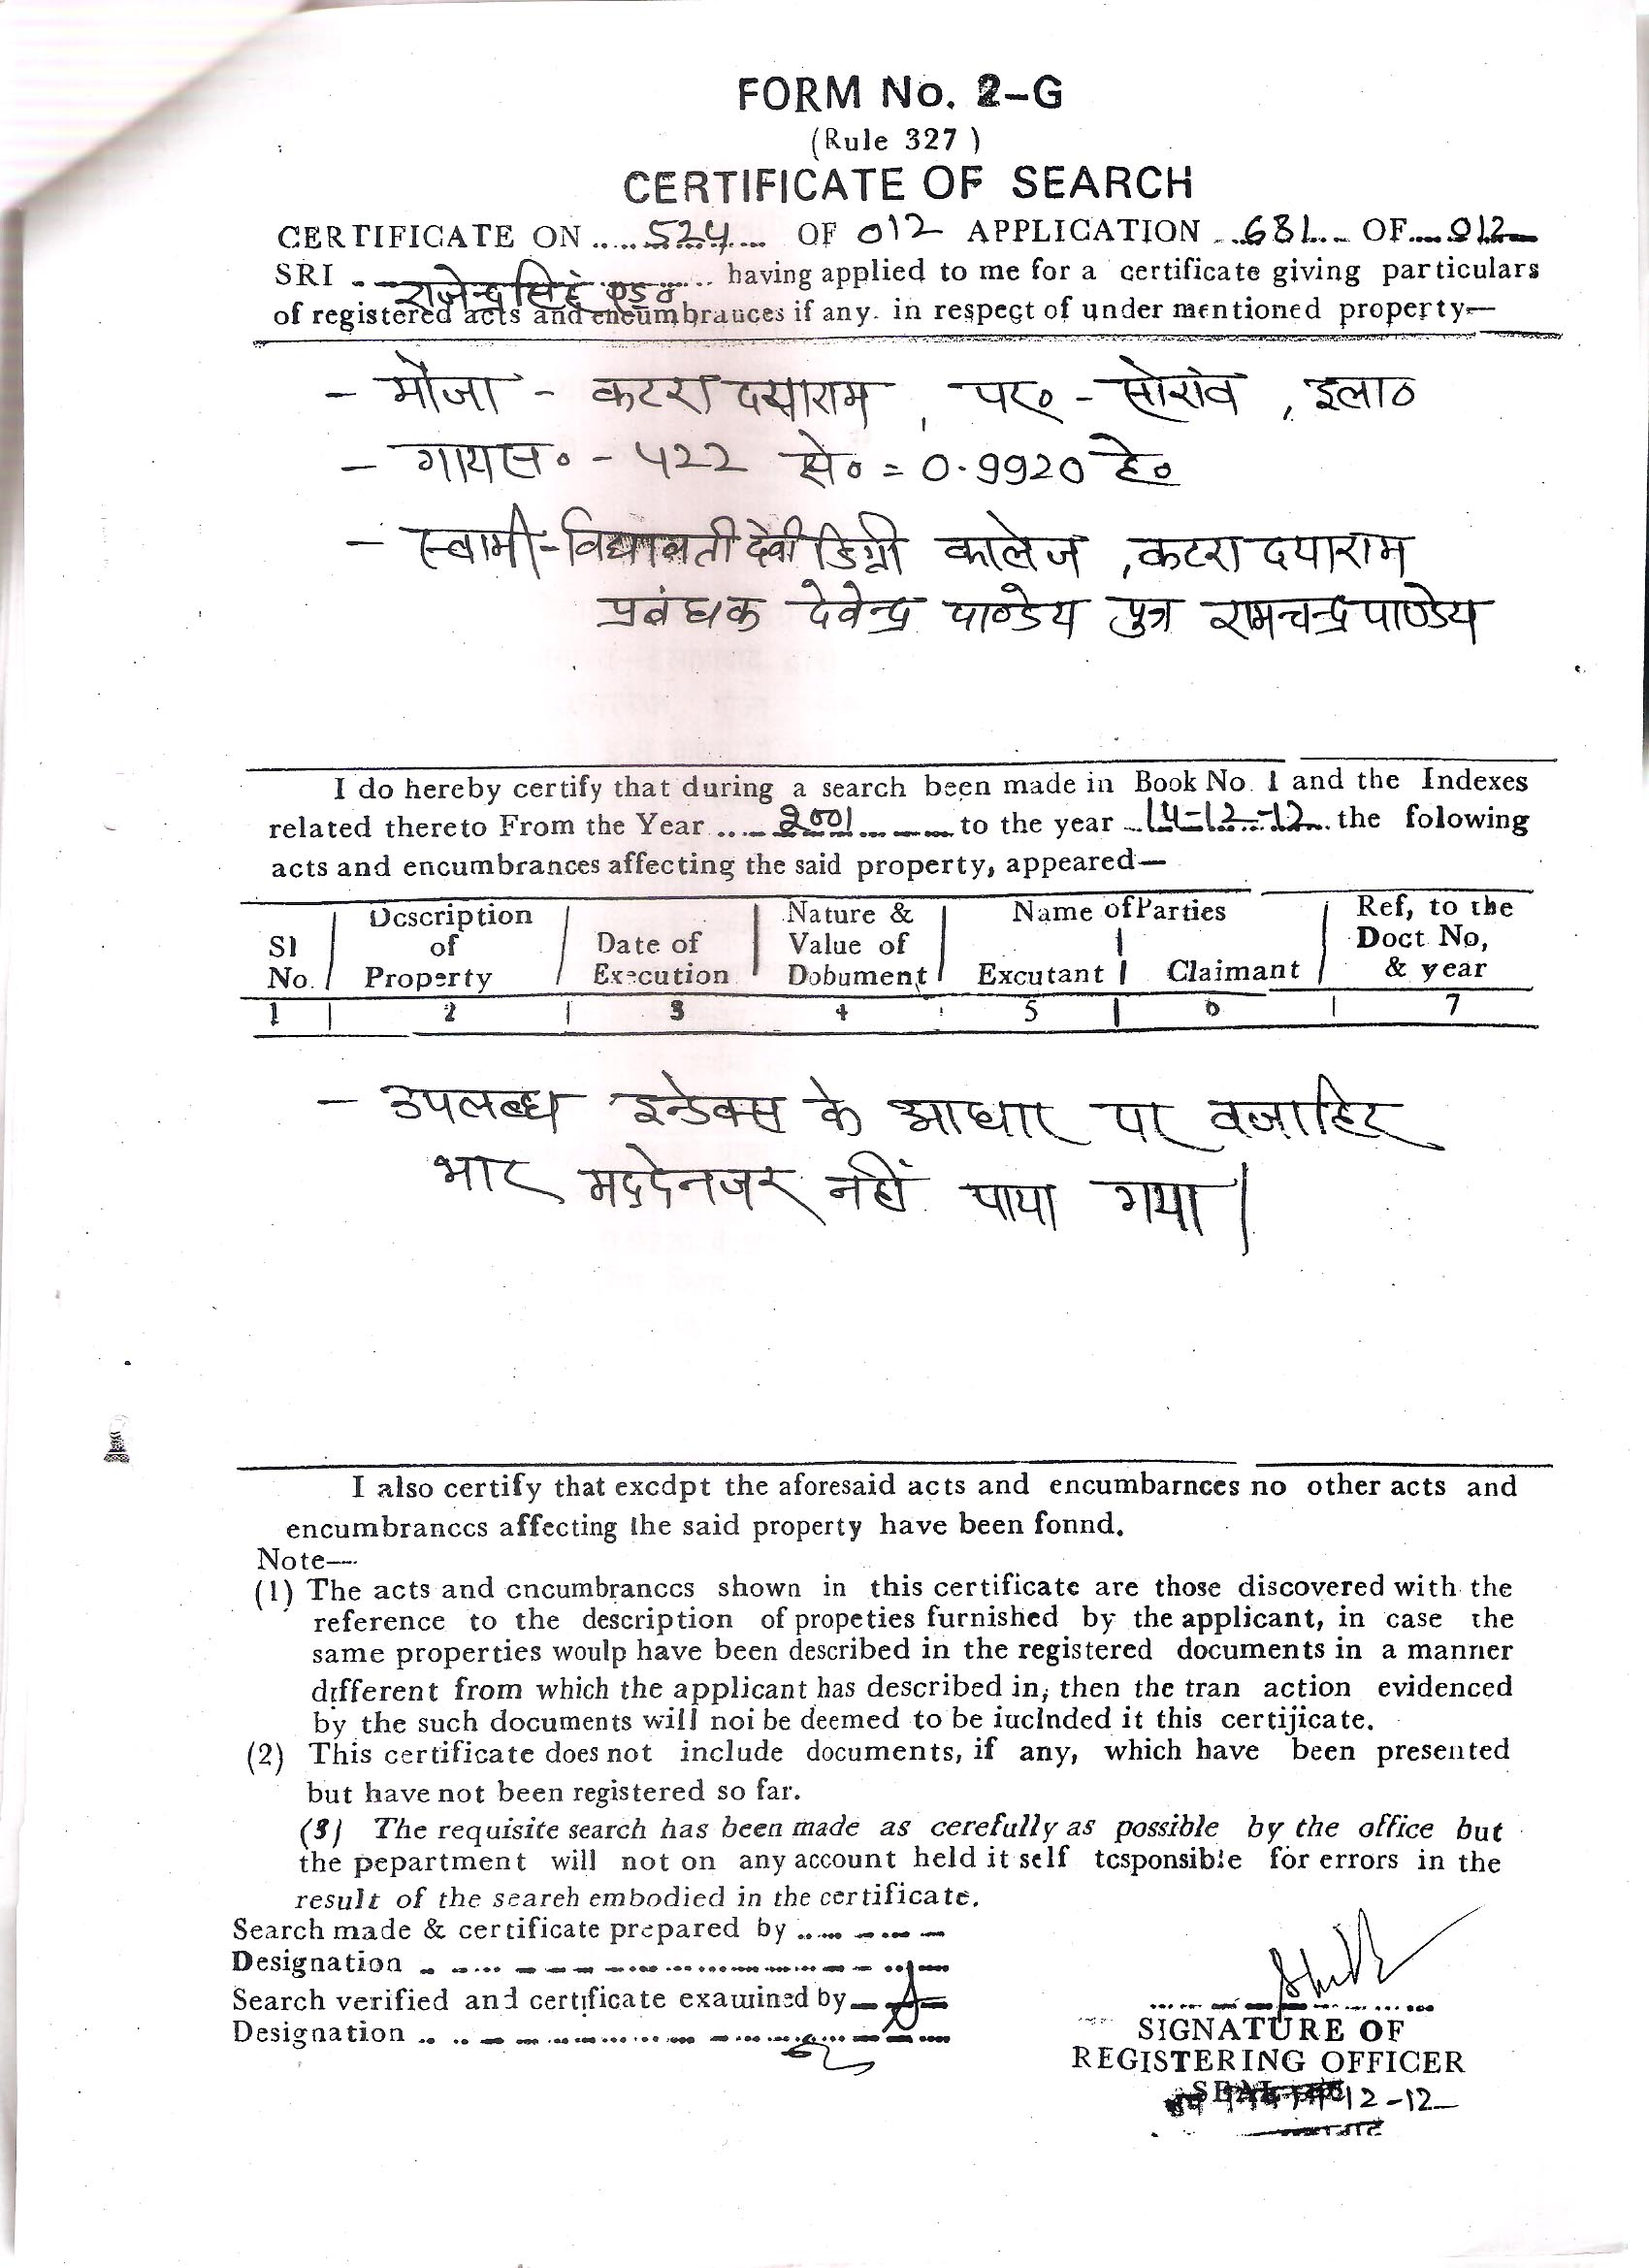 FORM No. 2-G
(Rule 327 )
CERTIFICATE OF SEARCH
CERTIFICATE ON ..... 524 .... OF 012 APPLICATION ...681... OF.....012
SRI राजेन्द्र सिंह एड० having applied to me for a certificate giving particulars
of registered acts and encumbrauces if any. in respect of under mentioned property—
- मौजा - कटरा दयाराम , पर० - सोरांव , इला०
- गायस० - 422 से० = 0.9920 हे०
- स्वामी - विद्यावती देवी डिग्री कालेज , कटरा दयाराम
प्रबंधक देवेन्द्र पाण्डेय पुत्र रामचन्द्र पाण्डेय
I do hereby certify that during a search been made in Book No. 1 and the Indexes
related thereto From the Year .... 2001 ...... to the year ...14-12-12... the folowing
acts and encumbrances affecting the said property, appeared—
Sl No. | Dcscription of Property | Date of Execution | Nature & Value of Dobument | Name of Parties Excutant | Claimant | Ref, to the Doct No, & year
1 | 2 | 3 | 4 | 5 | 6 | 7
- उपलब्ध इन्डेक्स के आधार पर वजाहिर
भार मद्देनजर नहीं पाया गया |
I also certify that excdpt the aforesaid acts and encumbarnces no other acts and
encumbranccs affecting the said property have been fonnd.
Note—
(1) The acts and cncumbranccs shown in this certificate are those discovered with the
reference to the description of propeties furnished by the applicant, in case the
same properties woulp have been described in the registered documents in a manner
different from which the applicant has described in, then the tran action evidenced
by the such documents will noi be deemed to be iuclnded it this certijicate.
(2) This certificate does not include documents, if any, which have been presented
but have not been registered so far.
(3) The requisite search has been made as cerefully as possible by the office but
the pepartment will not on any account held it self tcsponsible for errors in the
result of the seareh embodied in the certificate.
Search made & certificate prepared by .. .... — — —
Designation
Search verified and certificate examined by
Designation
SIGNATURE OF
REGISTERING OFFICER
SEAL
12-12